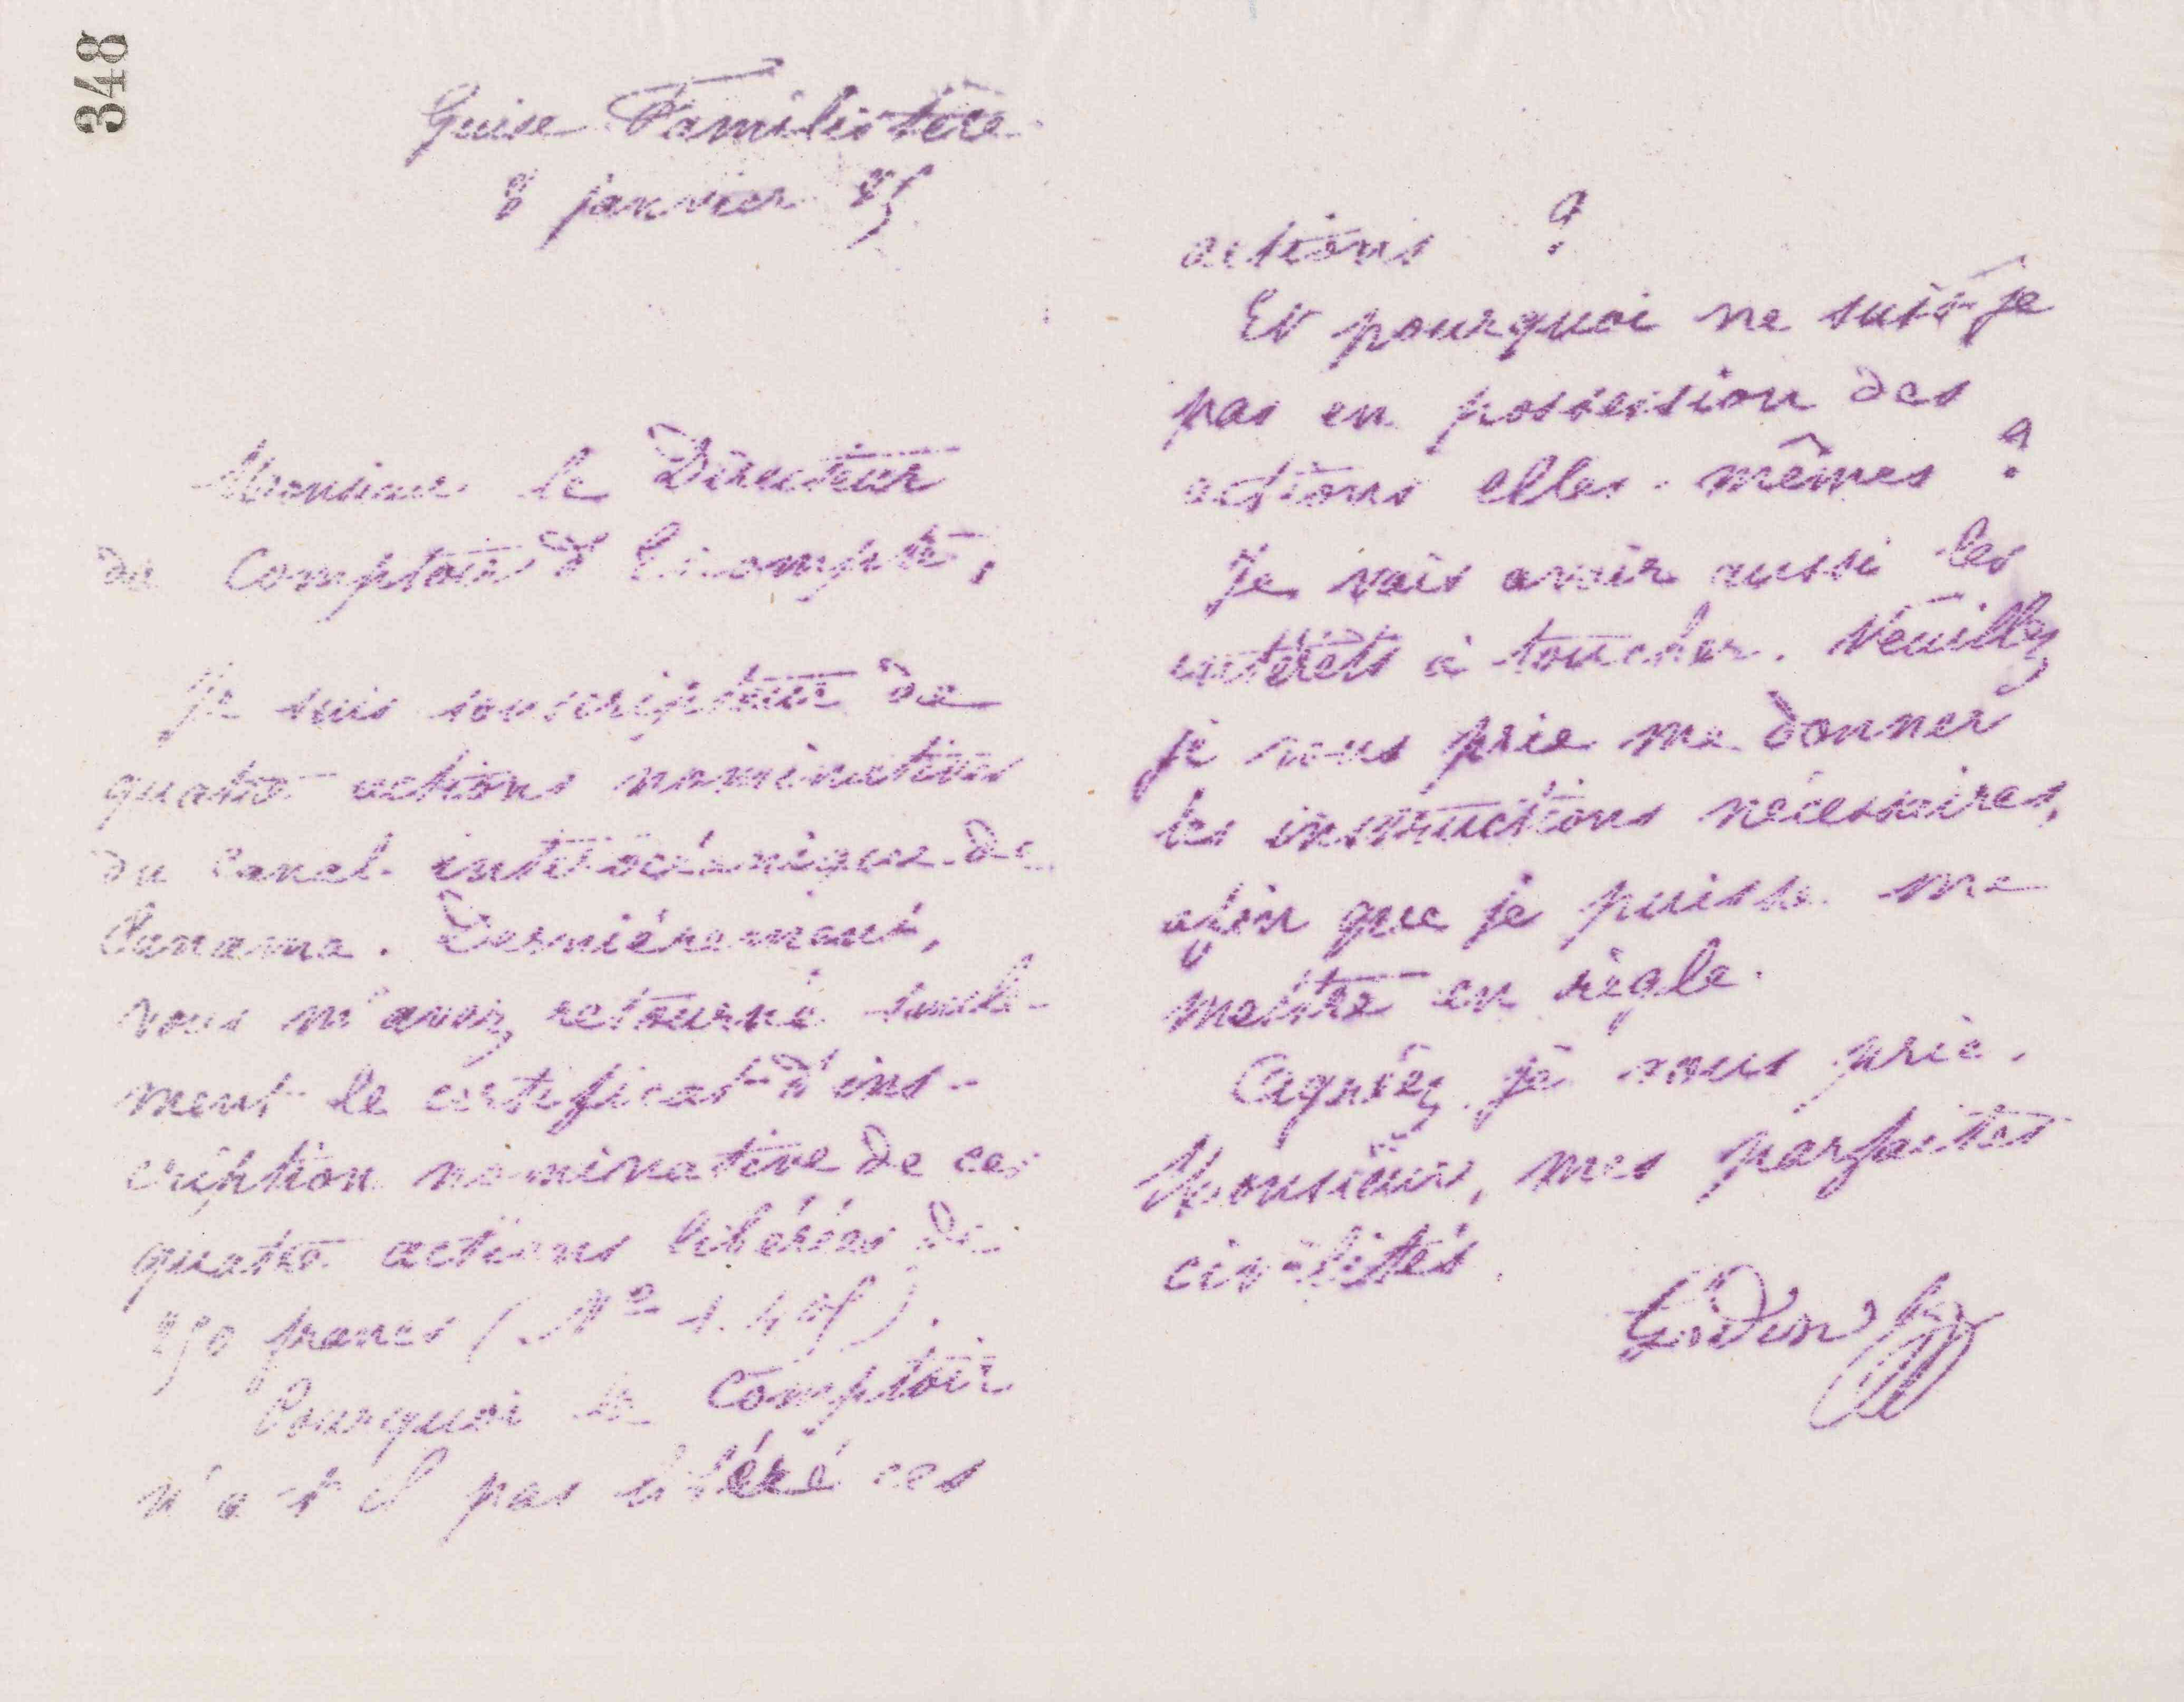 348
Guise Familistère
8 janvier 85
Monsieur le Directeur
du Comptoir d'Escompte,
Je suis souscripteur de
quatre actions nominatives
du Canal interocéanique de
Panama. Dernièrement,
vous m'avez retourné seule-
ment le certificat d'ins-
cription nominative de ces
quatre actions libérées de
250 francs (N°
Pourquoi le Comptoir
n'a-t-il pas libéré ces
actions ?
Et pourquoi ne suis-je
pas en possession des
actions elles-mêmes ?
Je vais avoir aussi les
intérêts à toucher. Veuillez
je vous prie me donner
les instructions nécessaires,
afin que je puisse me
mettre en règle.
Agréez, je vous prie,
Monsieur, mes parfaites
civilités.
Godin